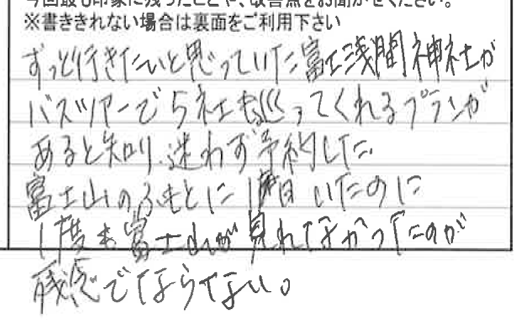 今回最も印象に残ったことや、改善点をお聞かせください。
※書ききれない場合は裏面をご利用下さい
ずっと行きたいと思っていた富士浅間神社が
バスツアーで5社も巡ってくれるプランが
あると知り、迷わず予約した。
富士山のふもとに1日いたのに
1度も富士山が見れなかったのが
残念でならない。